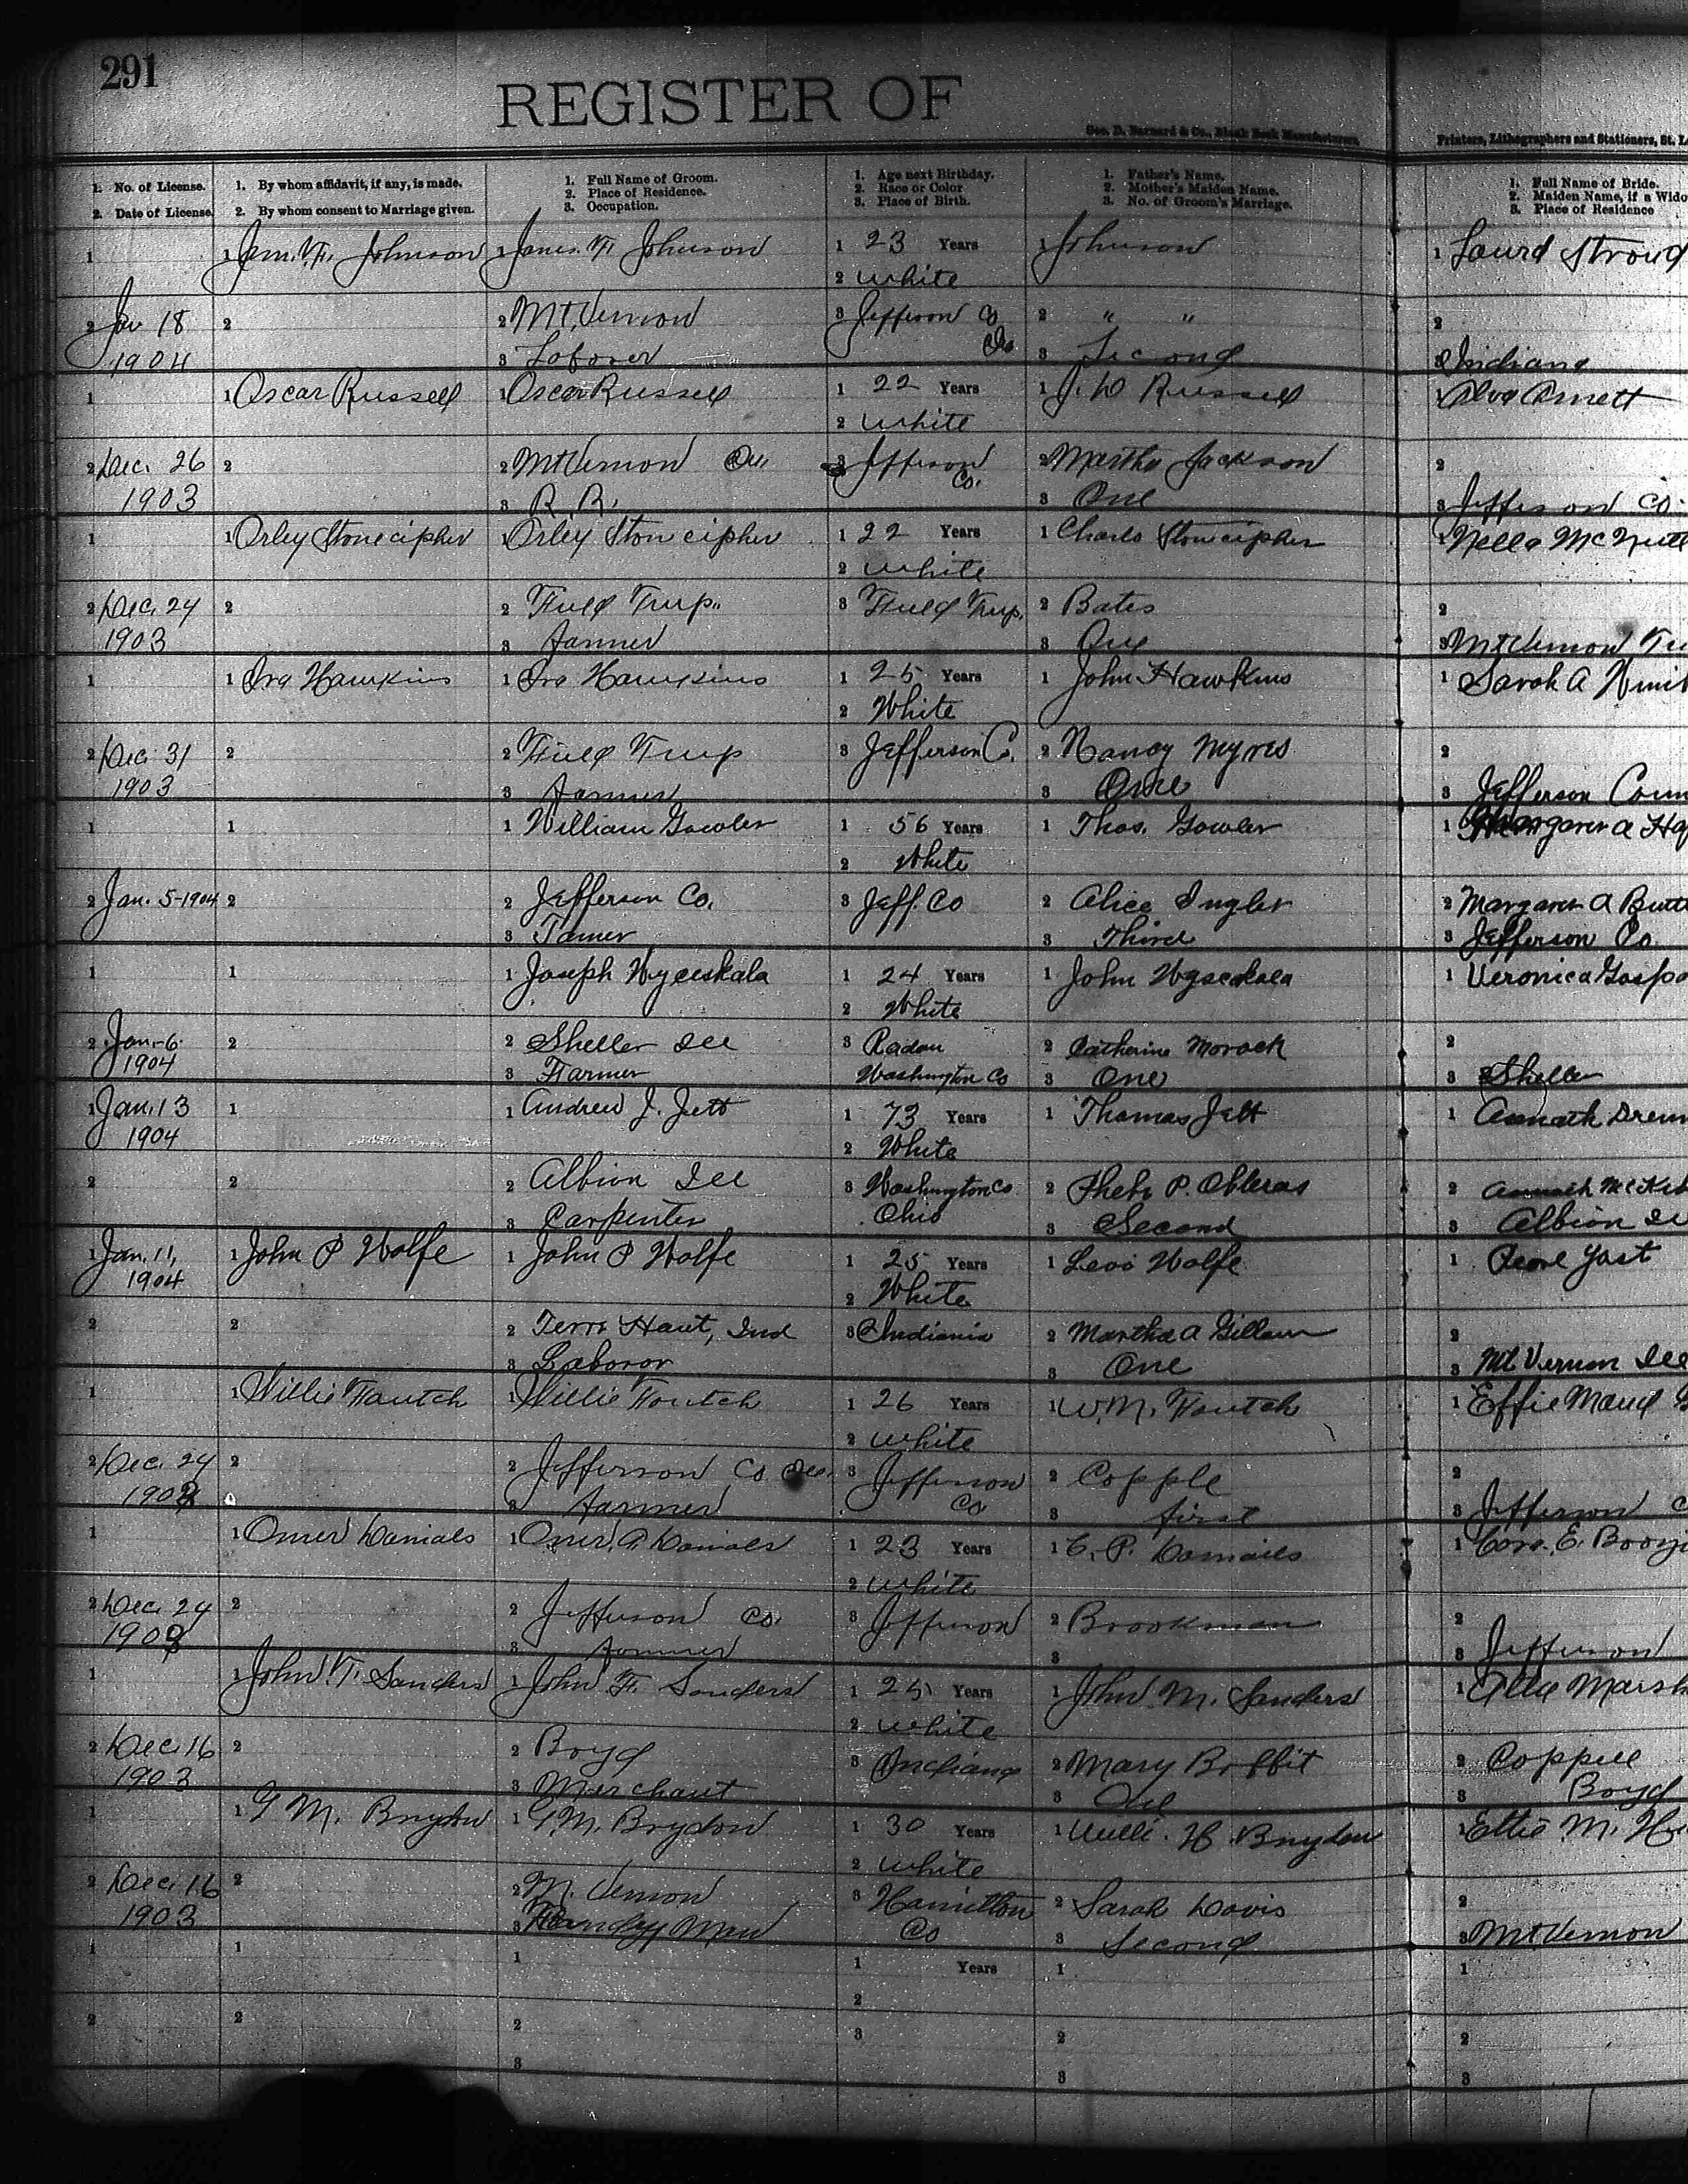 291
REGISTER OF
Geo. D. Barnard & Co., Blank Book Manufacturers,
Printers, Lithographers and Stationers, St. L
1. No. of License.
2. Date of License.
1. By whom affidavit, if any, is made.
2. By whom consent to Marriage given.
1. Full Name of Groom.
2. Place of Residence.
3. Occupation.
1. Age next Birthday.
2. Race or Color
3. Place of Birth.
1. Father's Name.
2. Mother's Maiden Name.
3. No. of Groom's Marriage.
1. Full Name of Bride.
2. Maiden Name, if a Wido
3. Place of Residence
1 1 Jam. F. Johnson 1 James F. Johnson 1 23 Years 1 Johnson 1 Laura Stroud
2 white
2 Jan 18 2 2 Mt. Vernon 3 Jefferson Co 2 " " 2
1904 3 Laborer Ills 3 Second 3 Indiana
1 1 Oscar Russell 1 Oscar Russell 1 22 Years 1 J. W Russell 1 Alva Arnett
2 white
2 Dec. 26 2 2 Mt Vernon Ill. 3 Jefferson 2 Martha Jackson 2
1903 3 R. R. Co. 3 One 3 Jefferson Co.
1 1 Orley Stonecipher 1 Orley Stonecipher 1 22 Years 1 Charles Stonecipher 1 Nella McNutt
2 white
2 Dec. 24 2 2 Field Twp. 3 Field Twp. 2 Bates 2
1903 3 farmer 3 One 3 Mt Vernon Tw
1 1 Ira Hawkins 1 Ira Hawkins 1 25 Years 1 John Hawkins 1 Sarah A
2 White
2 Dec. 31 2 2 Field Twp 3 Jefferson Co. 2 Nancy Myres 2
1903 3 farmer 3 One 3 Jefferson Coun
1 1 1 William Gowler 1 56 Years 1 Thos. Gowler 1 Margaret a Ha
2 White
2 Jan. 5-1904 2 2 Jefferson Co. 3 Jeff. Co 2 Alice Ingler 2 Margaret A Butt
3 Farmer 3 Third 3 Jefferson Co
1 1 1 Joseph 1 24 Years 1 John 1 Veronica Gaspo
2 White
2 Jan.-6. 2 2 Sheller Ill 3 Radau 2 Catherine Morock 2
1904 3 Farmer Washington Co 3 One 3 Sheller
1 Jan. 13 1 1 Andrew J. Jett 1 73 Years 1 Thomas Jett 1
1904 2 White
2 2 2 Albion Ill 3 Washington Co 2 P. 2
3 Carpenter Ohio 3 Second 3 Albion Ill
1 Jan. 11, 1 John P Wolfe 1 John P Wolfe 1 25 Years 1 Levi Wolfe 1 Pearl Yost
1904 2 White
2 2 2 Terre Haut, Ind 3 Indiania 2 Martha A Gillam 2
3 Laboror 3 One 3 Mt Vernon Ill
1 1 Willie Foutch 1 Willie Foutch 1 26 Years 1 W. M. Foutch 1 Effie Maud
2 white
2 Dec. 24 2 2 Jefferson Co. Ills. 3 Jefferson 2 Copple 2
1903 3 farmer Co 3 first 3 Jefferson C
1 1 Omer Daniels 1 Omer. A. Daniels 1 23 Years 1 C. P. Daniels 1 Cora. E.
2 white
2 Dec. 24 2 2 Jefferson Co. 3 Jefferson 2 Brookman 2
1903 3 farmer 3 3 Jefferson
1 1 John F. Sanders 1 John F. Sanders 1 25 Years 1 John M. Sanders 1 Alla Marsh
2 white
2 Dec. 16 2 2 Boyd 3 Indiana 2 Mary Boffit 2 Coppell
1903 3 Merchant 3 One 3 Boyd
1 1 G M. Brydon 1 G. M. Brydon 1 30 Years 1 Willi. H Brydon 1 Ettie M.
2 white
2 Dec. 16 2 2 M. Vernon 3 Hamilton 2 Sarah Davis 2
1903 3 Man Co 3 Second 3 Mt Vernon
1 1 1 1 Years 1 1
2
2 2 2 3 2 2
3 3 3